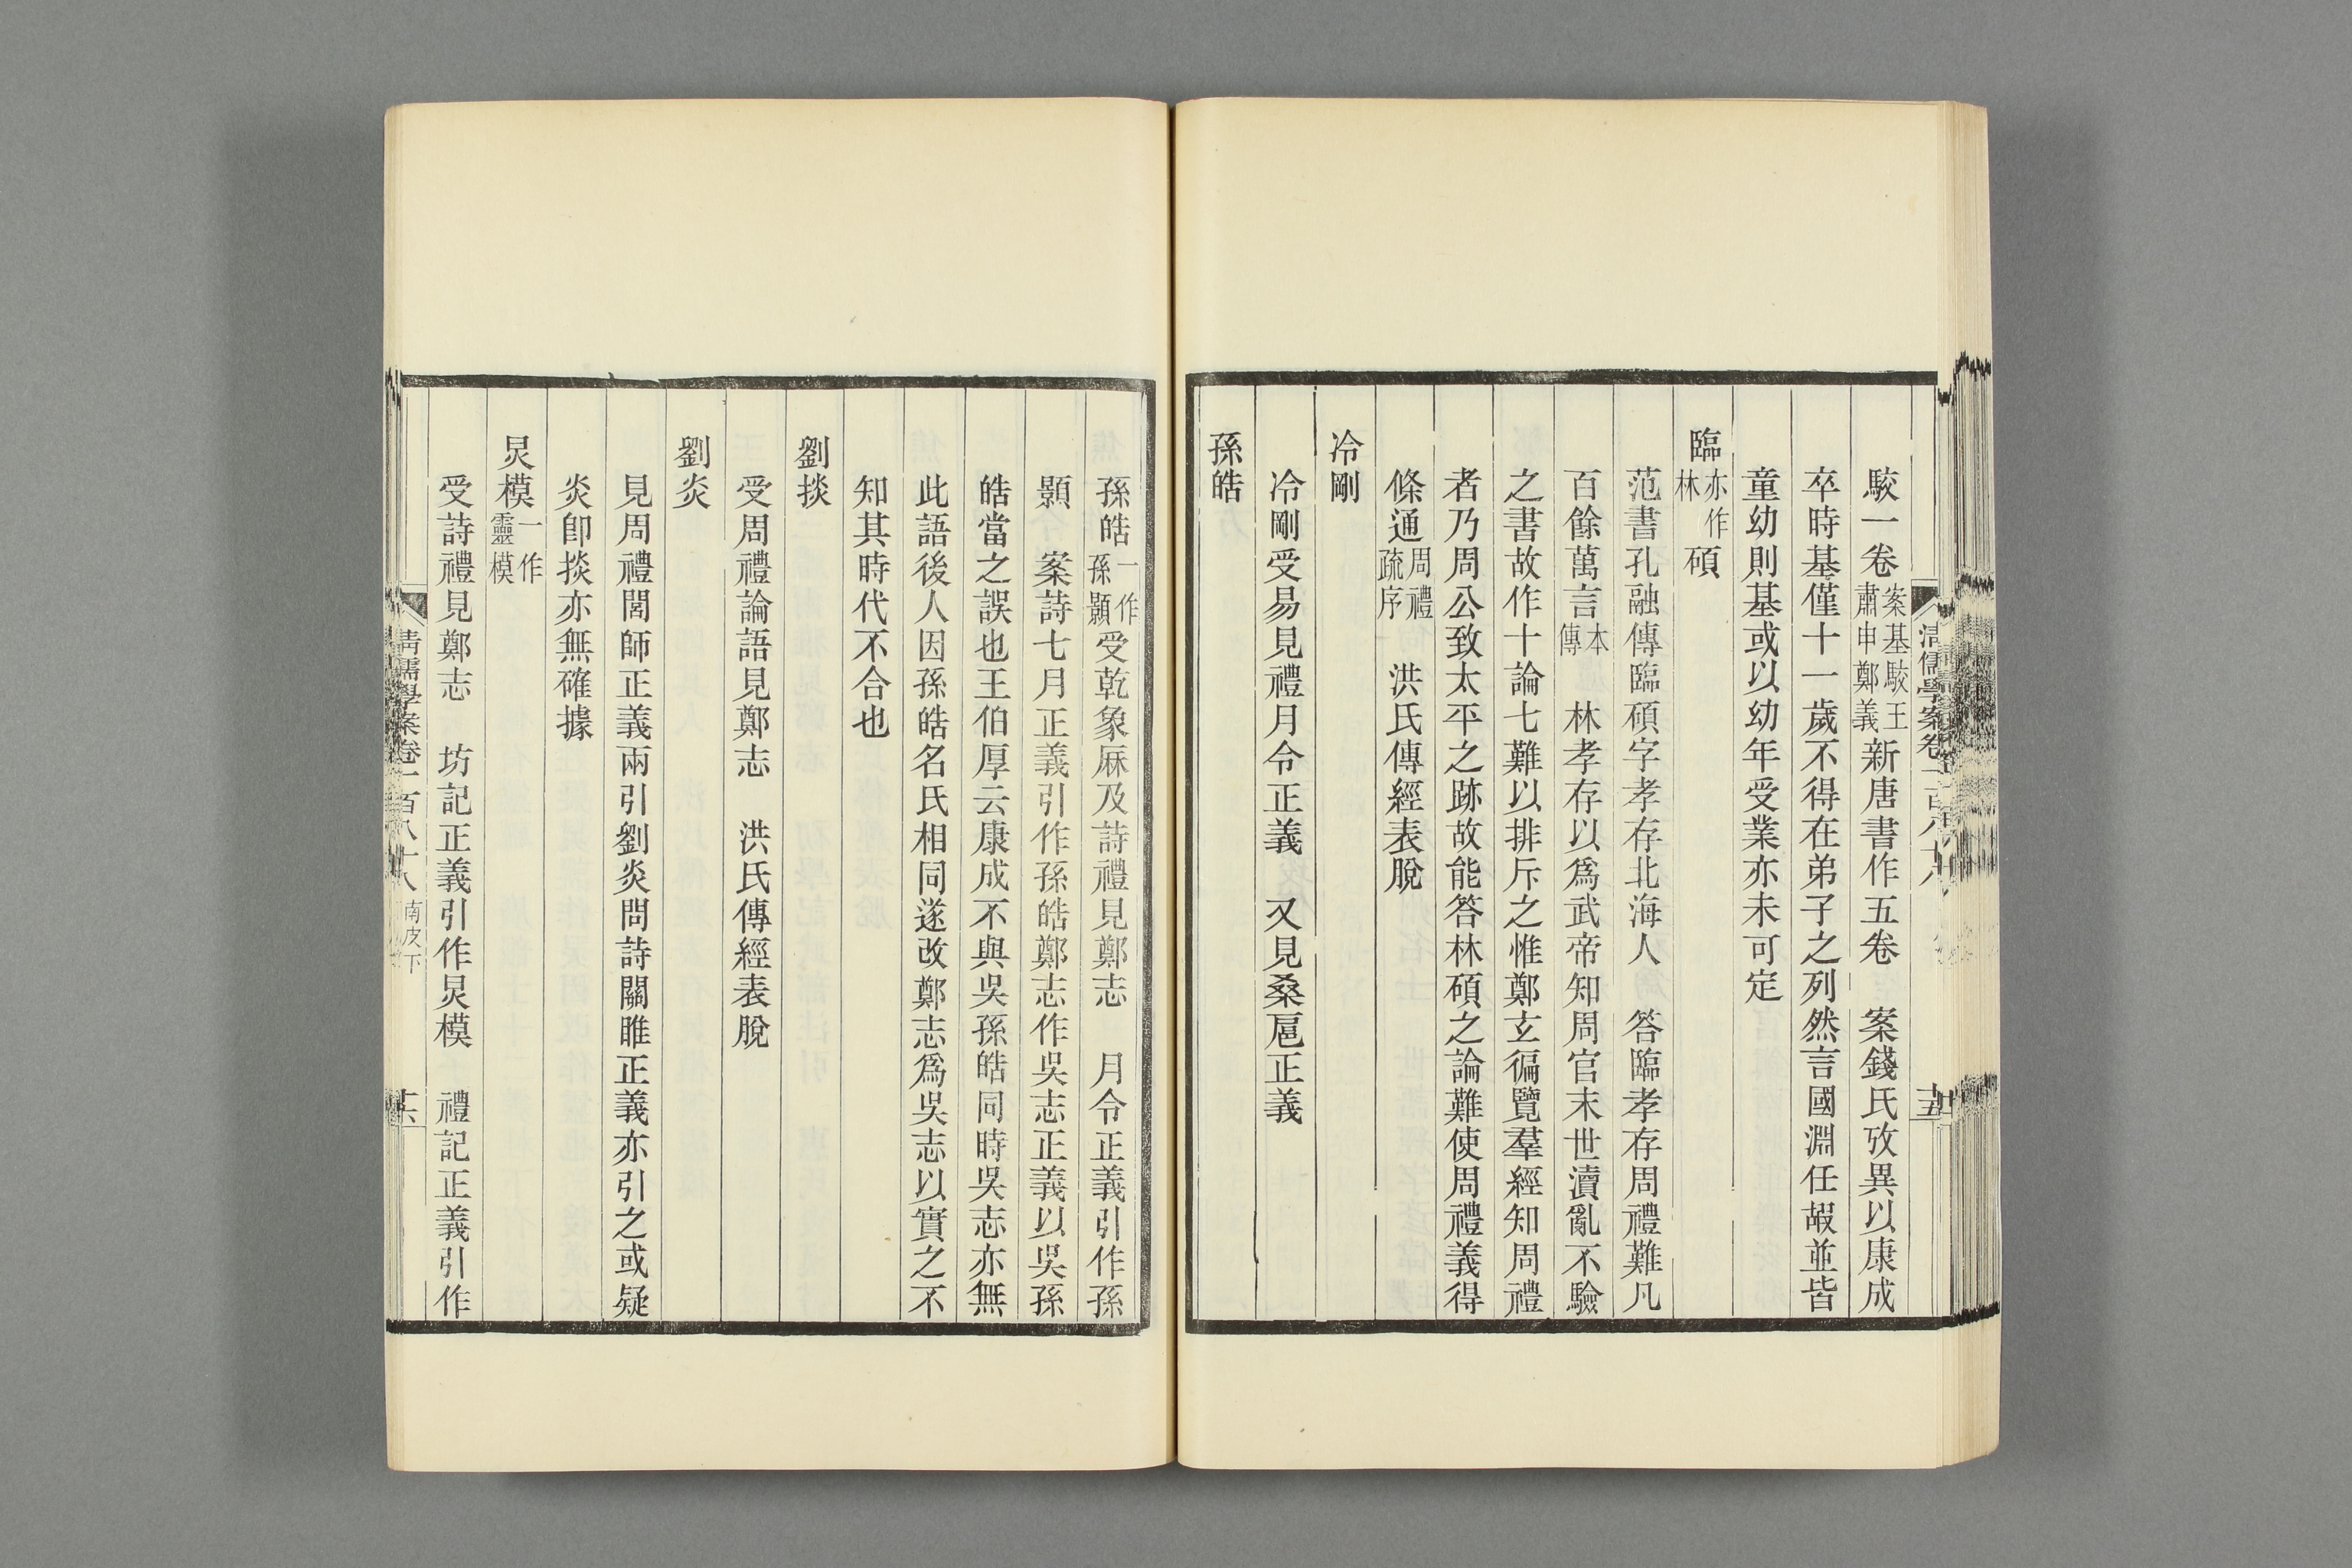 駮一卷案基駮王肅申鄭義新唐書作五卷　案錢氏攷異以康成
卒時基僅十一歲不得在弟子之列然言國淵任嘏並皆
童幼則基或以幼年受業亦未可定
臨亦作林碩
范書孔融傳臨碩字孝存北海人　答臨孝存周禮難凡
百餘萬言本傳　林孝存以爲武帝知周官末世瀆亂不驗
之書故作十論七難以排斥之惟鄭玄徧覽羣經知周禮
者乃周公致太平之跡故能答林碩之論難使周禮義得
條通周禮疏序　洪氏傳經表脫
冷剛
冷剛受易見禮月令正義　又見桑扈正義
孫皓
孫皓一作孫顥受乾象厤及詩禮見鄭志　月令正義引作孫
顥　案詩七月正義引作孫皓鄭志作吳志正義以吳孫
皓當之誤也王伯厚云康成不與吳孫皓同時吳志亦無
此語後人因孫皓名氏相同遂改鄭志爲吳志以實之不
知其時代不合也
劉掞
受周禮論語見鄭志　洪氏傳經表脫
劉炎
見周禮閭師正義兩引劉炎問詩關雎正義亦引之或疑
炎卽掞亦無確據
炅模一作靈模
受詩禮見鄭志　坊記正義引作炅模　禮記正義引作
清儒學案卷一百八十八 南皮下 十六